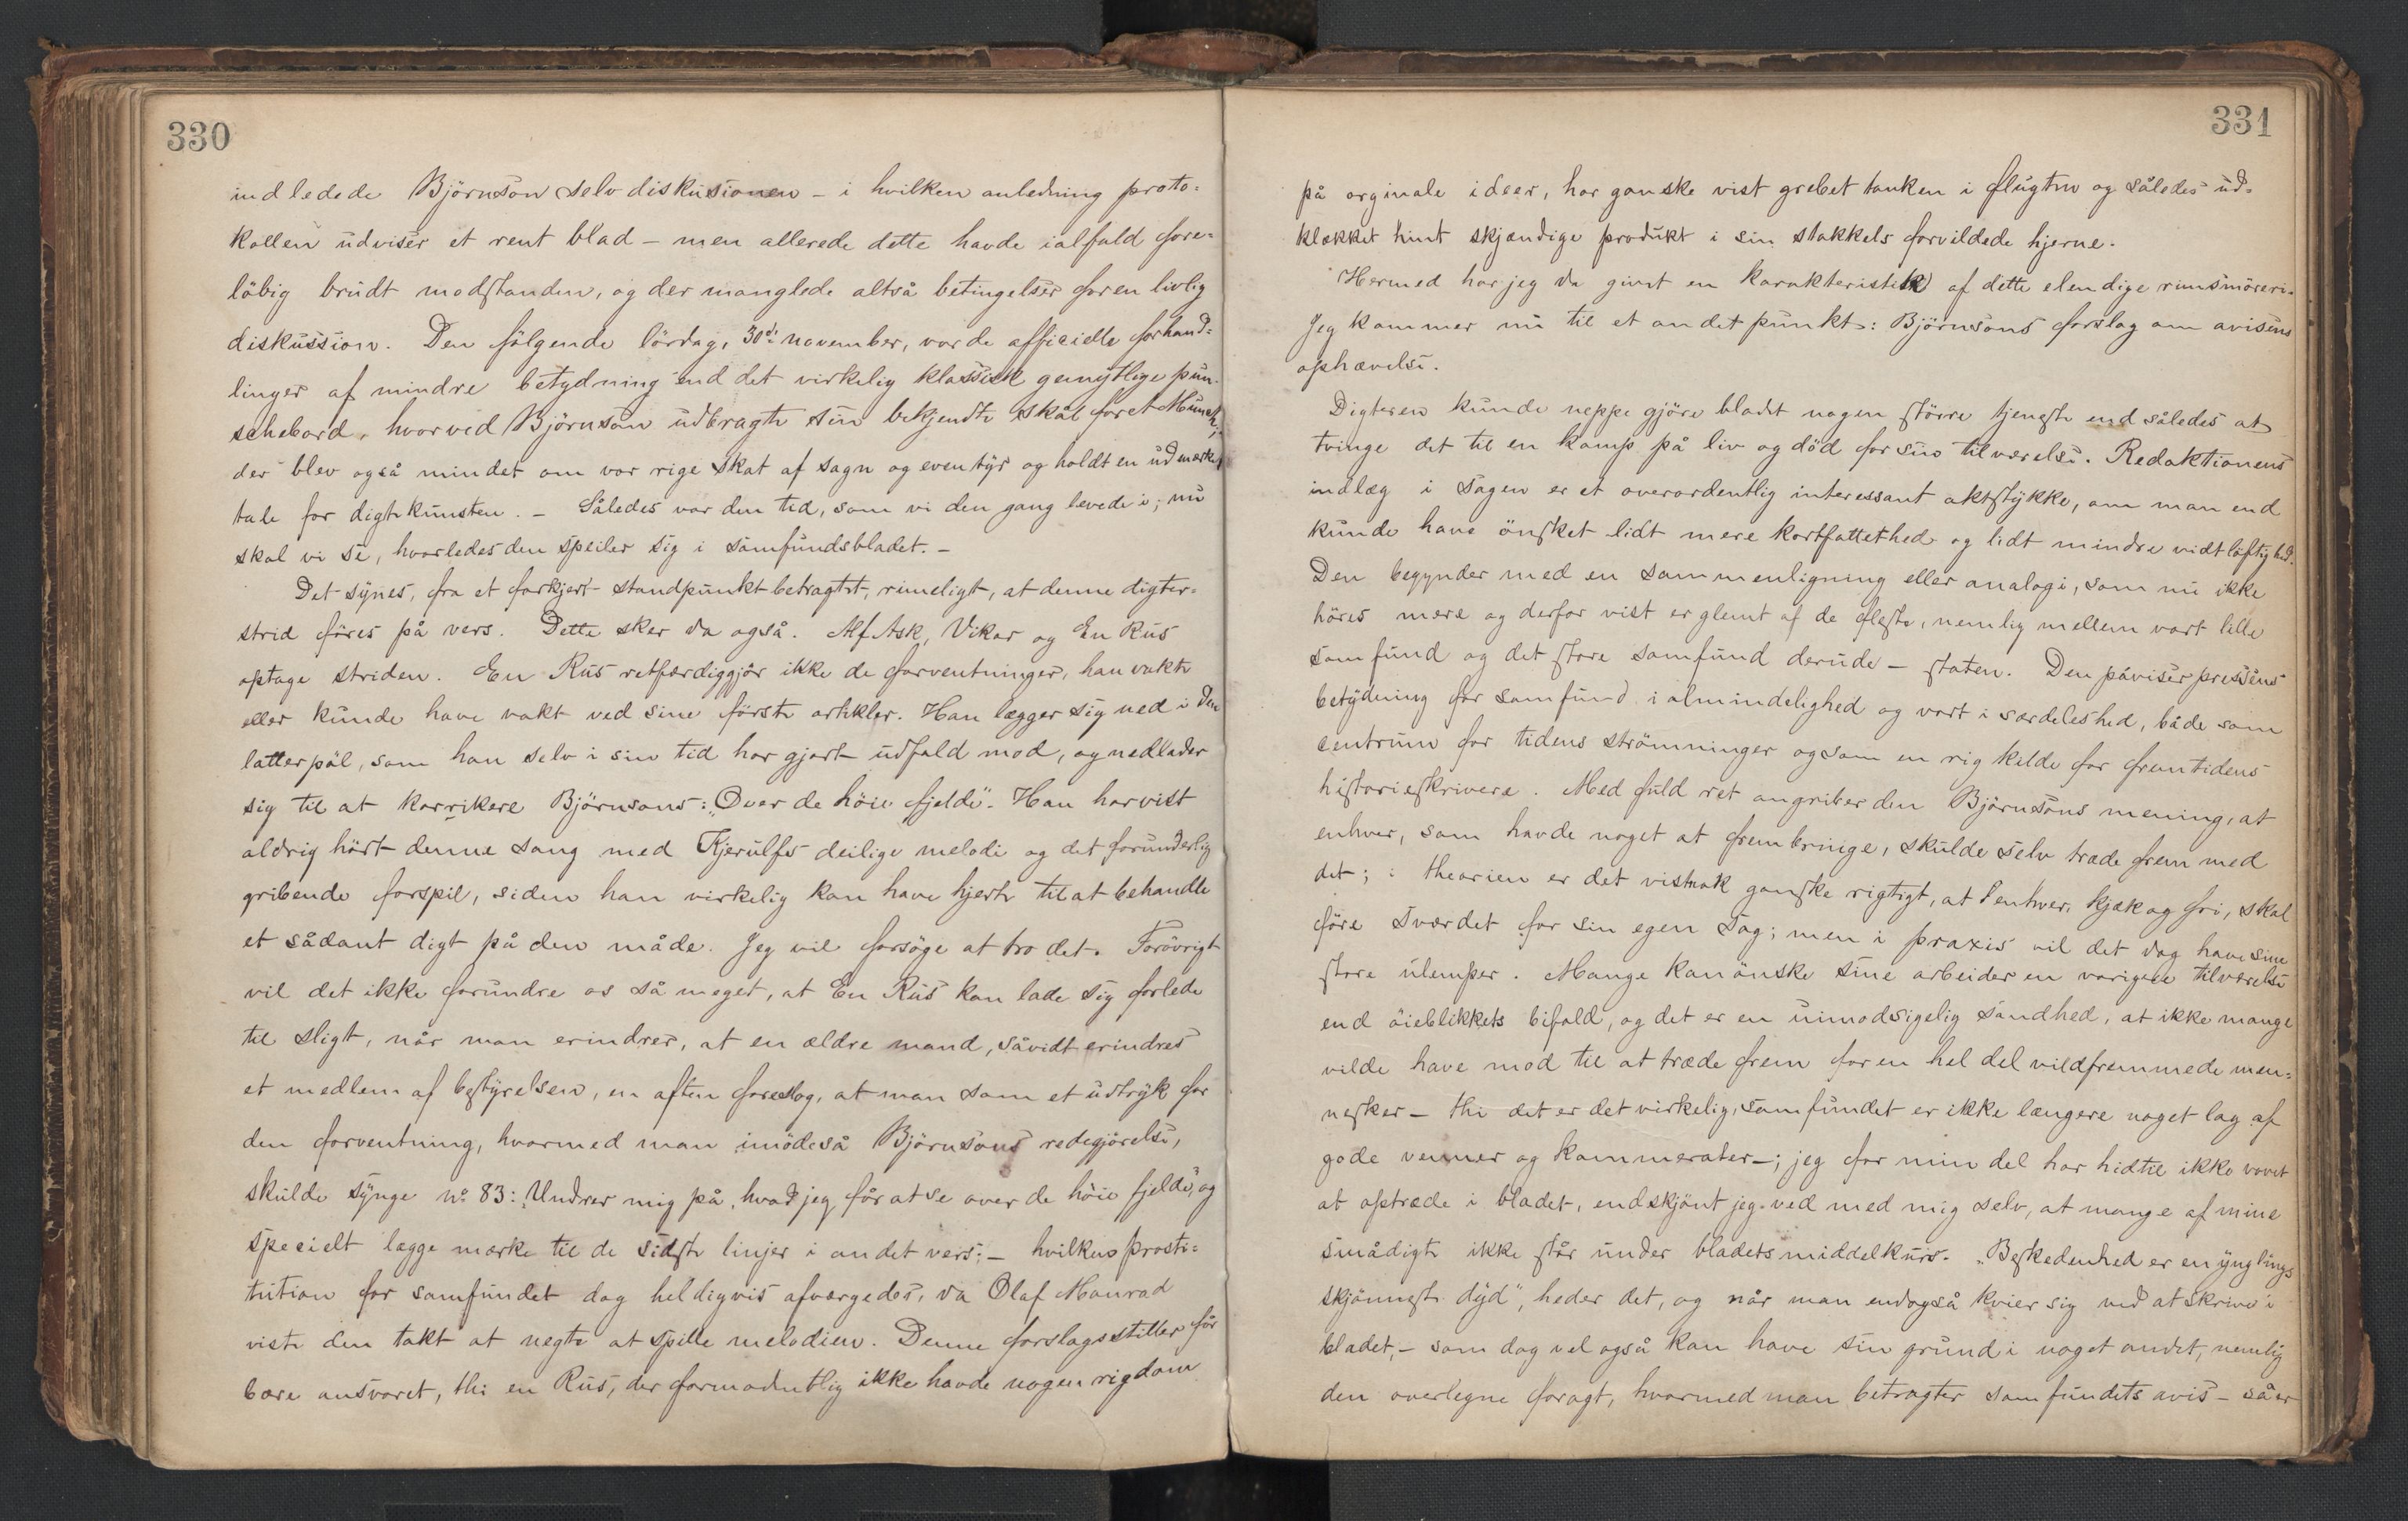 330
indledede Björnson selv diskusionen – i hvilken anledning proto=
kollen udviser et rent blad – men allerede dette havde ialfald fore=
löbig brudt modstanden, og der manglede altså betingelser for en livlig
diskussion. Den fölgende lördag, 30d: november, var de officielle forhand=
linger af mindre betydning end det virkelig klassisk gemytlige pun=
schebord, hvorved Björnson udbragte sin bekjendte skål for et Munch;
der blev også mindet om vor rige skat af sagn og eventyr og holdt en udmærket
tale for digtekunsten. – Således var den tid, som vi den gang levede i; nu
skal vi se, hvorledes den speiler sig i samfundsbladet. –
Det synes, fra et forkjert standpunkt betragtet, rimeligt, at denne digter=
strid föres på vers. Dette sker da også. Alf Ask, Vikar og En Rus
optage striden. En Rus retfærdiggjör ikke de forventninger, han vakte
eller kunde have vakt ved sine förste artikler. Han lægger sig ned i den
latterpöl, som han selv i sin tid har gjort udfald mod, og nedlader
sig til at karrikere Björnsons: „Over de höie fjelde". Han har vist
aldrig hört denne sang med Kjerulfs deilige melodi og det forunderlig
gribende forspil, siden han virkelig kan have hjerte til at behandle
et sådant digt på den måde. Jeg vil forsöge at tro det. Forövrigt
vil det ikke forundre os så meget, at En Rus kan lade sig forlede
til sligt, når man erindrer, at en ældre mand, såvidt erindres
et medlem af bestyrelsen, en aften foreslog, at man som et udtryk for
den forventning, hvormed man imödeså Björnsons redegjörelse,
skulde synge no 83: „Undrer mig på, hvad jeg får at se over de höie fjelde", og
specielt lægge mærke til de sidste linjer i andet vers; – hvilken prosti=
tution for samfundet dog heldigvis afværgedes, da Olaf Monrad
viste den takt at negte at spille melodien. Denne forslagsstiller får
bære ansvaret, thi en Rus, der formodentlig ikke havde nogen rigdom
331
på orginale ideer, har ganske vist grebet tanken i flugten og således ud=
klækket hint skjændige produkt i sin stakkels forvildede hjerne.
Hermed har jeg da givet en karakteristik af dette elendige rimsmöreri.
Jeg kommer nu til et andet punkt: Björnsons forslag om avisens
ophævelse.
Digteren kunde neppe gjöre bladet nogen större tjeneste end således at
tvinge det til en kamp på liv og död for sin tilværelse. Redaktionens
indlæg i sagen er et overordentlig interessant aktstykke, om man end
kunde have önsket lidt mere kortfattethed og lidt mindre vidtlöftighed.
Den begynder med en sammenligning eller analogi, som nu ikke
höres mere og derfor vist er glemt af de fleste, nemlig mellem vort lille
samfund og det store samfund derude – staten. Den påviser pressens
betydning for samfund i almindelighed og vort i særdeleshed, både som
centrum for tidens strömninger og som en rig kilde for fremtidens
historieskrivere. Med fuld ret angriber den Björnsons mening, at
enhver, som havde noget at frembringe, skulde selv træde frem med
det; i theorien er det vistnok ganske rigtigt, at enhver, kjæk og fri, skal
före sværdet for sin egen sag; men i praxis vil det dog have sine
store ulemper. Mange kan önske sine arbeider en varigere tilværelse
end öieblikkets bifald, og det er en uimodsigelig sandhed, at ikke mange
vilde have mod til at træde frem for en hel del vildfremmede men=
nesker – thi det er det virkelig, samfundet er ikke længere noget lag af
gode venner og kammerater –; jeg for min del har hidtil ikke vovet
at optræde i bladet, endskjönt jeg ved med mig selv, at mange af mine
smådigte ikke står under bladets middelkurs. „Beskedenhed er en ynglings
skjönneste dyd", heder det, og når man endogså kvier sig ved at skrive i
bladet, – som dog vel også kan have sin grund i noget andet, nemlig
den overlegne foragt, hvormed man betragter samfundets avis – så er